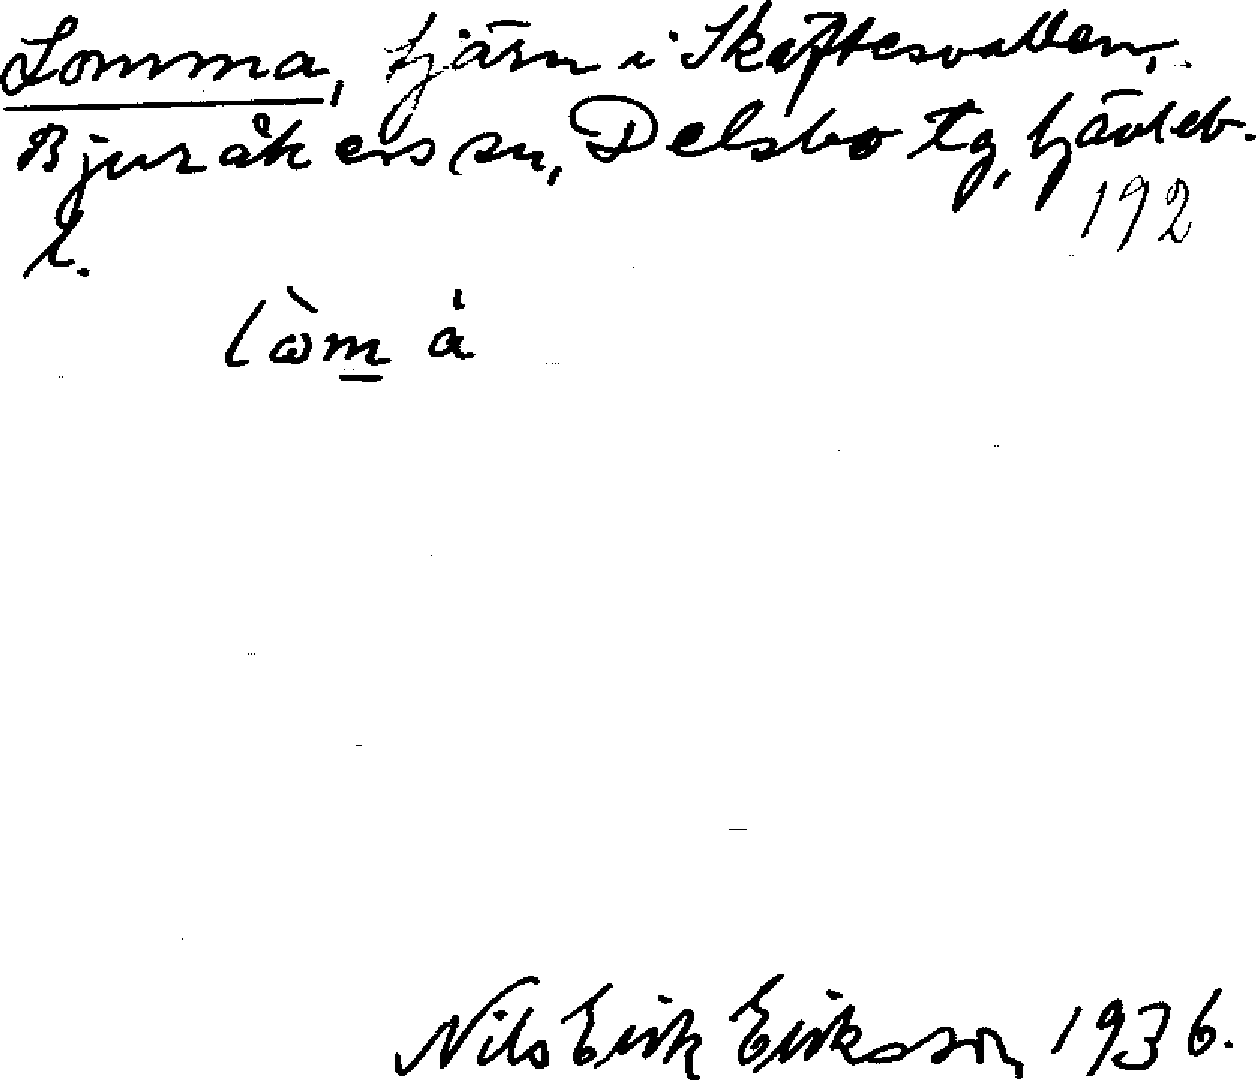 Lomma, tjärn i Skäftesvallen,
Bjuråkers sn, Delsbo tg, Gävleb.
l.
192
Nils Erik Eriksson 1936.